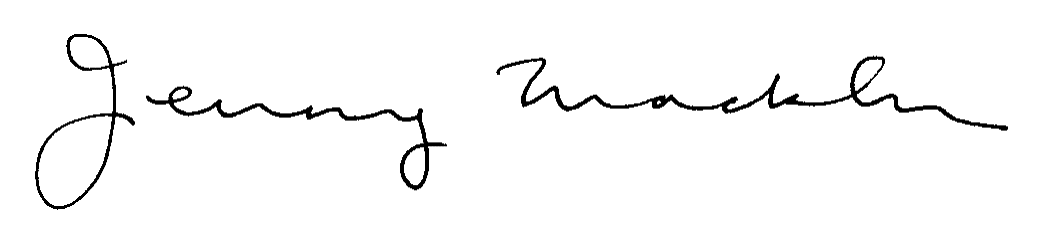 Jenny Macklin